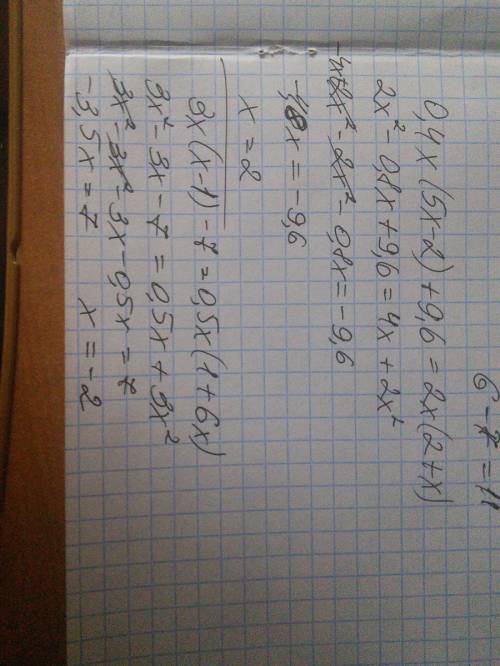 6 - 7 = 11
0,4x (5x-2) + 9,6 = 2x(2+x)
2x² - 0,8x + 9,6 = 4x + 2x²
-4x+2x² - 2x² - 0,8x = -9,6
-4,8x = -9,6
x = 2
3x (x-1) - 7 = 0,5x (1 + 6x)
3x² - 3x - 7 = 0,5x + 3x²
3x² - 3x² - 3x - 0,5x = 7
-3,5x = 7     x = -2